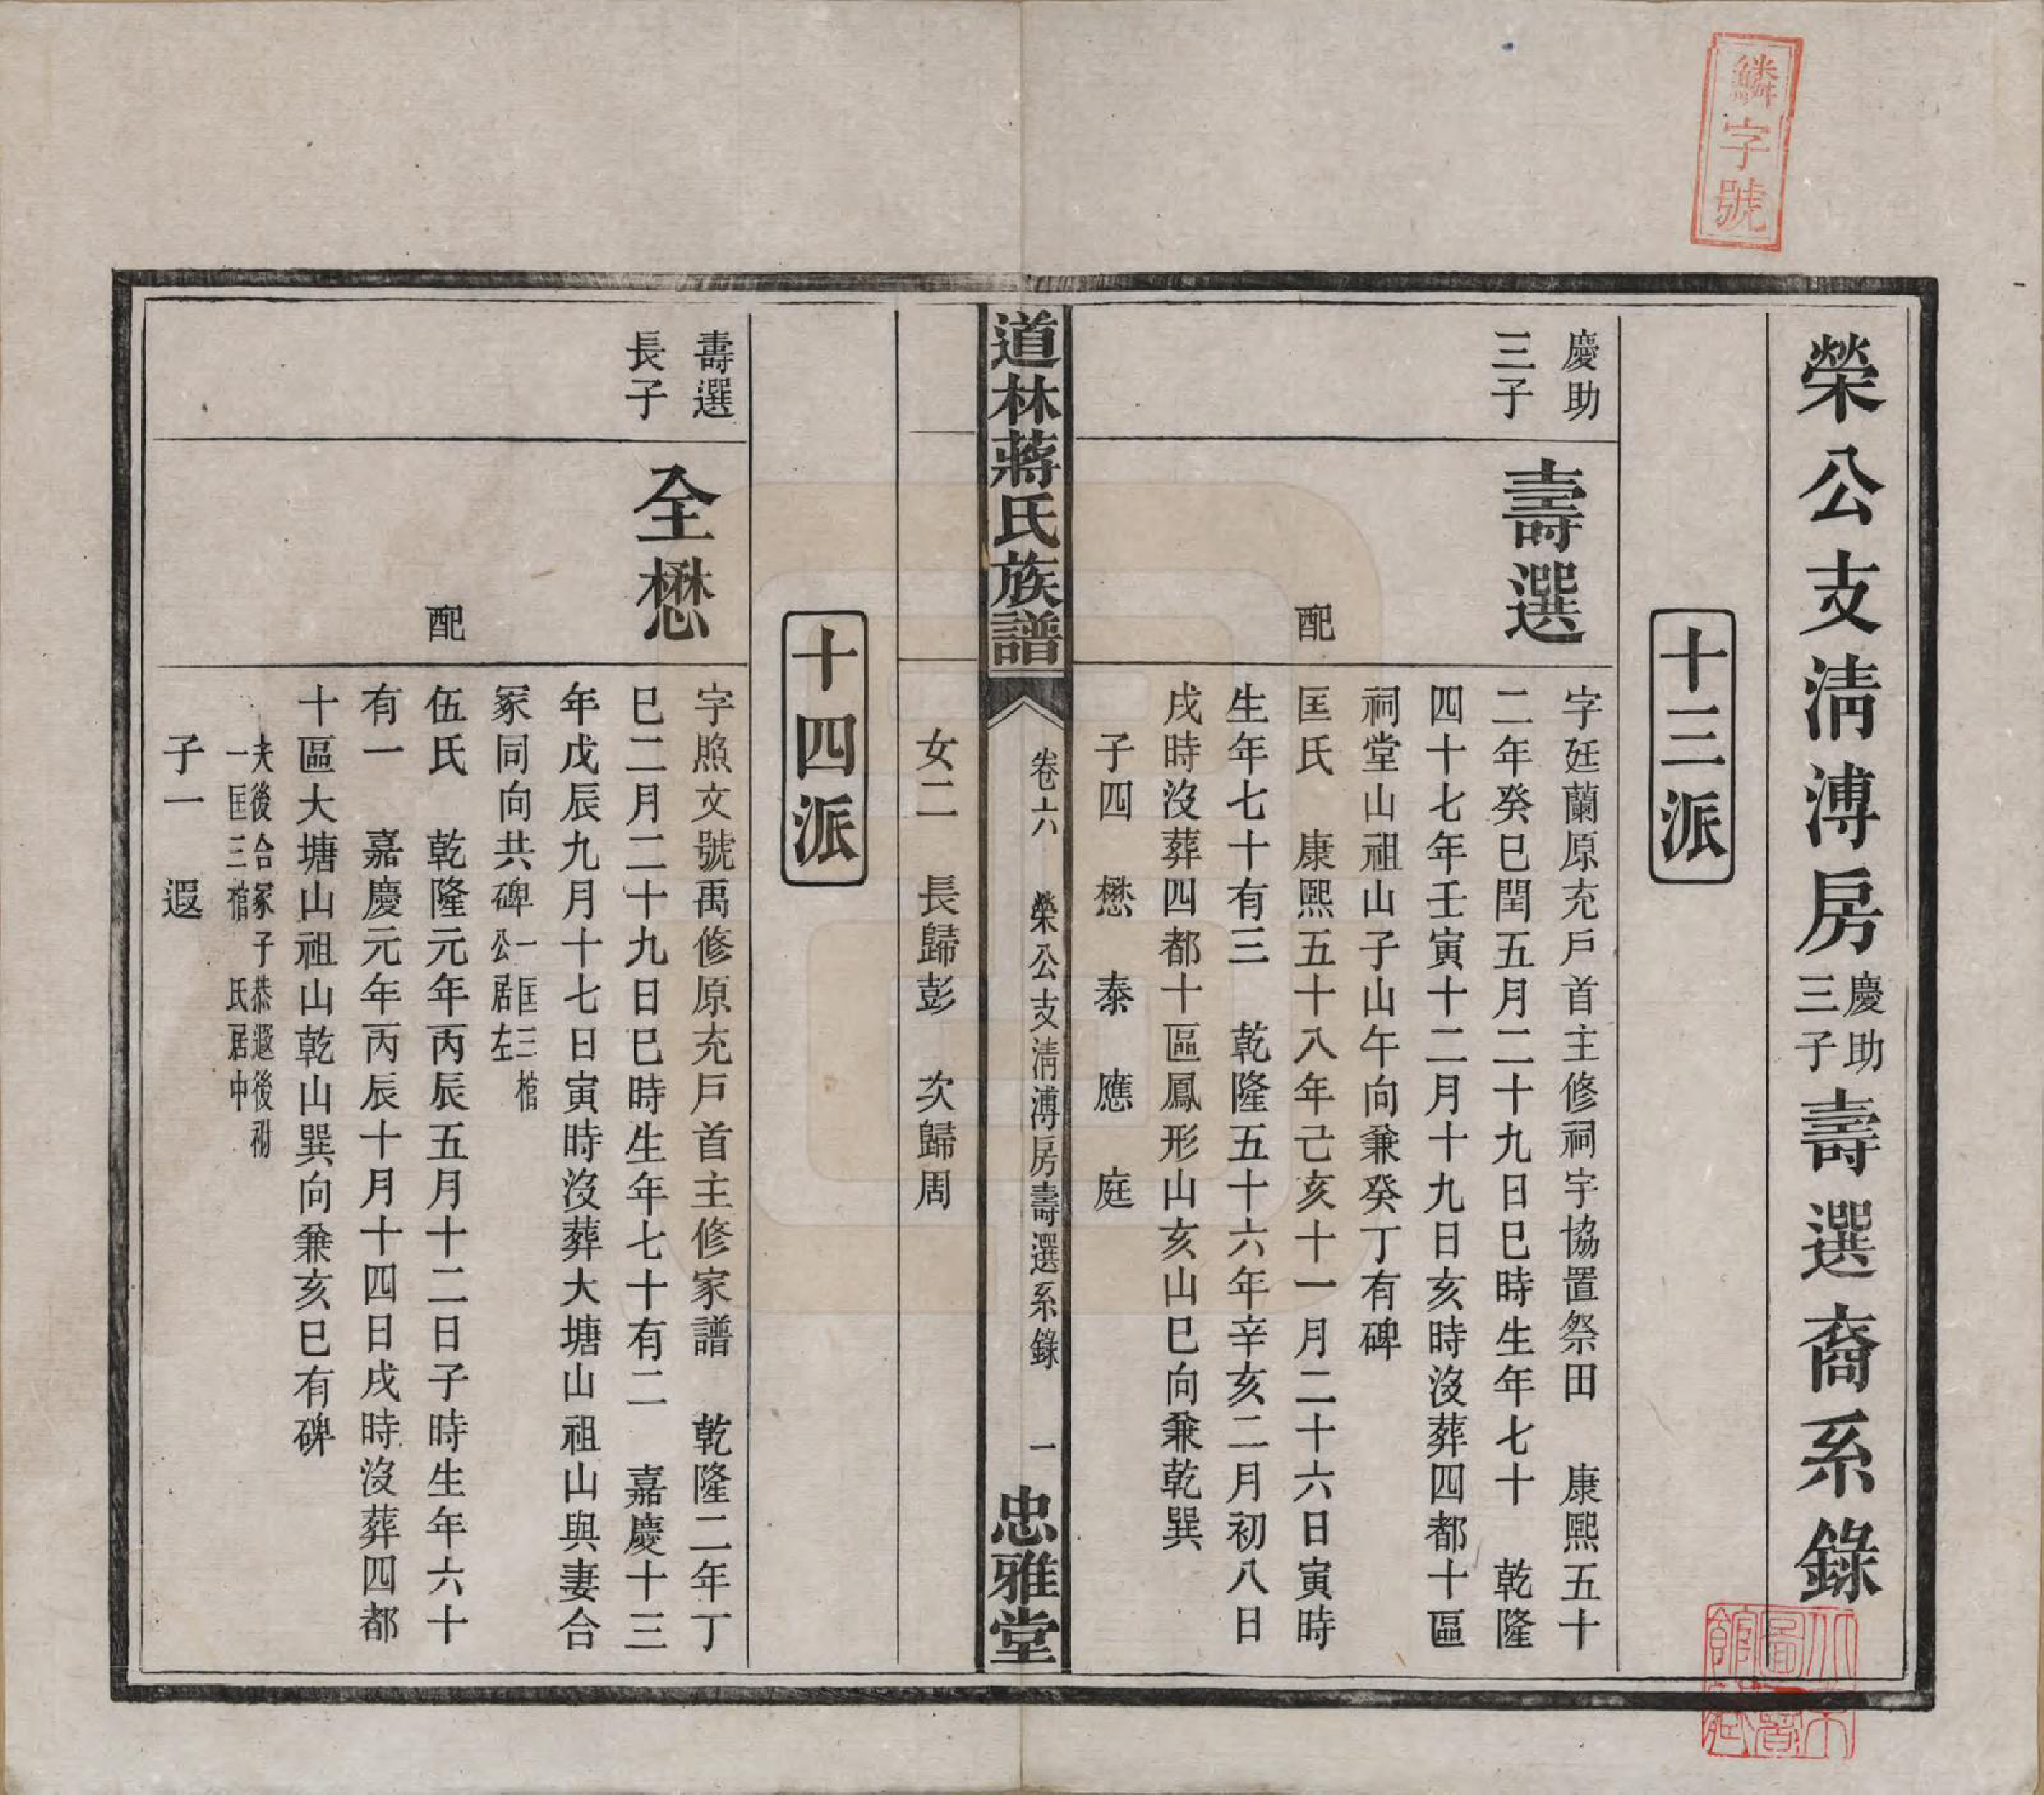 鱗字號
榮公支淸溥房慶助三子壽選裔系錄
十三派
慶助
三子
壽選
字廷蘭原充戶首主修祠宇協置祭田 康熙五十
二年癸巳閏五月二十九日巳時生年七十 乾隆
四十七年壬寅十二月十九日亥時沒葬四都十區
祠堂山祖山子山午向兼癸丁有碑
配
匡氏 康熙五十八年己亥十一月二十六日寅時
生年七十有三 乾隆五十六年辛亥二月初八日
戌時沒葬四都十區鳳形山亥山巳向兼乾巽
子四 懋 泰 應 庭
道林蔣氏族譜
卷六 榮公支淸溥房壽選系錄 一
忠雅堂
女二 長歸彭 次歸周
十四派
壽選
長子
全懋
字照文號禹修原充戶首主修家譜 乾隆二年丁
巳二月二十九日巳時生年七十有二 嘉慶十三
年戊辰九月十七日寅時沒葬大塘山祖山與妻合
冢同向共碑一匡三棺公居左
配
伍氏 乾隆元年丙辰五月十二日子時生年六十
有一 嘉慶元年丙辰十月十四日戌時沒葬四都
十區大塘山祖山乾山巽向兼亥巳有碑
夫後合冢子恭遐後祔
一匡三棺 氏居中
子一 遐